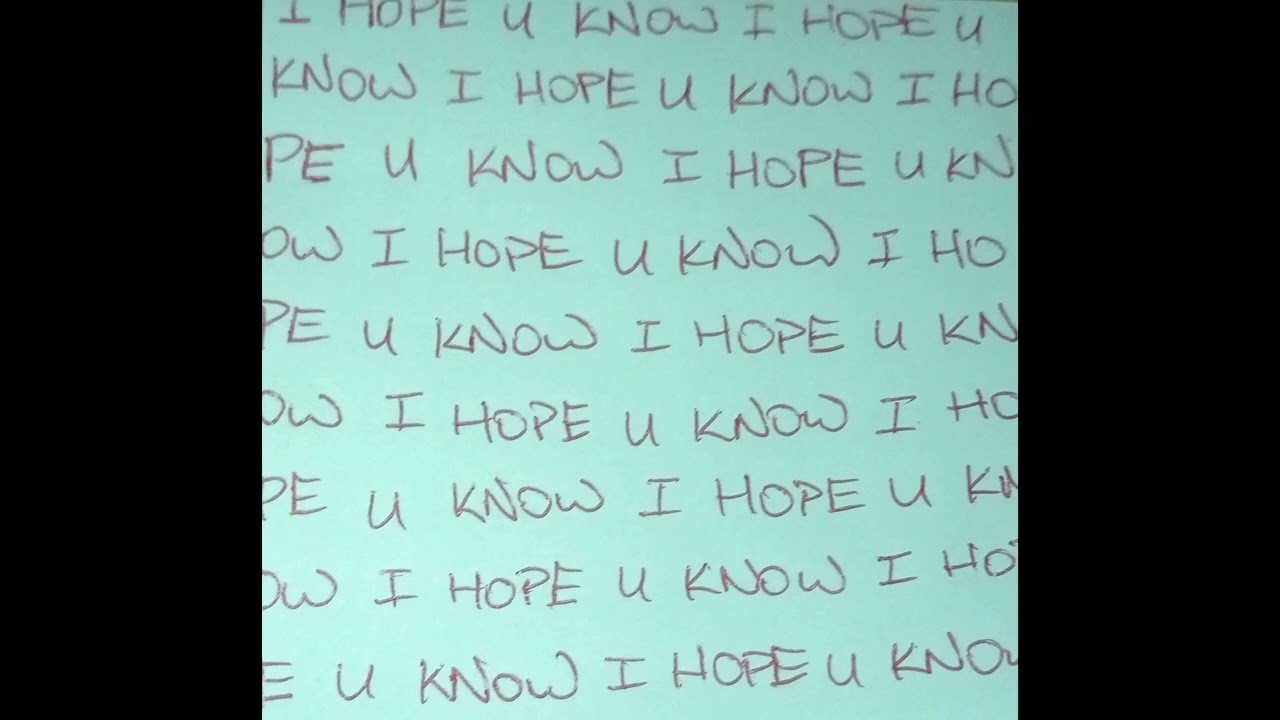 I HOPE U KNOW I HOPE U
KNOW I HOPE U KNOW I HO
PE U KNOW I HOPE U KN
OW I HOPE U KNOW I HO
PE U KNOW I HOPE U KN
OW I HOPE U KNOW I HO
PE U KNOW I HOPE U KN
OW I HOPE U KNOW I HOP
E U KNOW I HOPE U KNOW